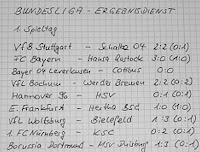 BUNDESLIGA - ERGEBNISDIENST
1. Spieltag
VfB Stuttgart - Schalke 04 2:2 (0:1)
FC Bayern - Hansa Rostock 3:0 (1:0)
Bayer 04 Leverkusen - Cottbus 0:0
VfL Bochum - Werder Bremen 2:2 (0:2)
Hannover 96 - HSV 0:1 (0:1)
E. Frankfurt - Hertha BSC 1:0 (1:0)
VfL Wolfsburg - Bielefeld 1:3 (0:1)
1. FC Nürnberg - KSC 0:2 (0:1)
Borussia Dortmund - MSV Duisburg 1:3 (0:1)